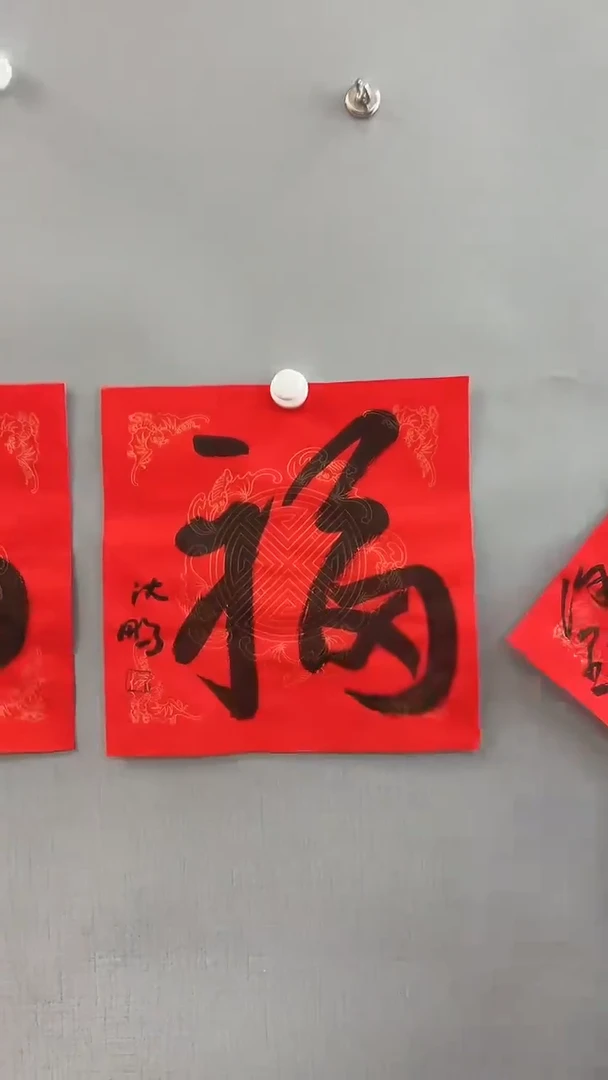 福
沈
鹏